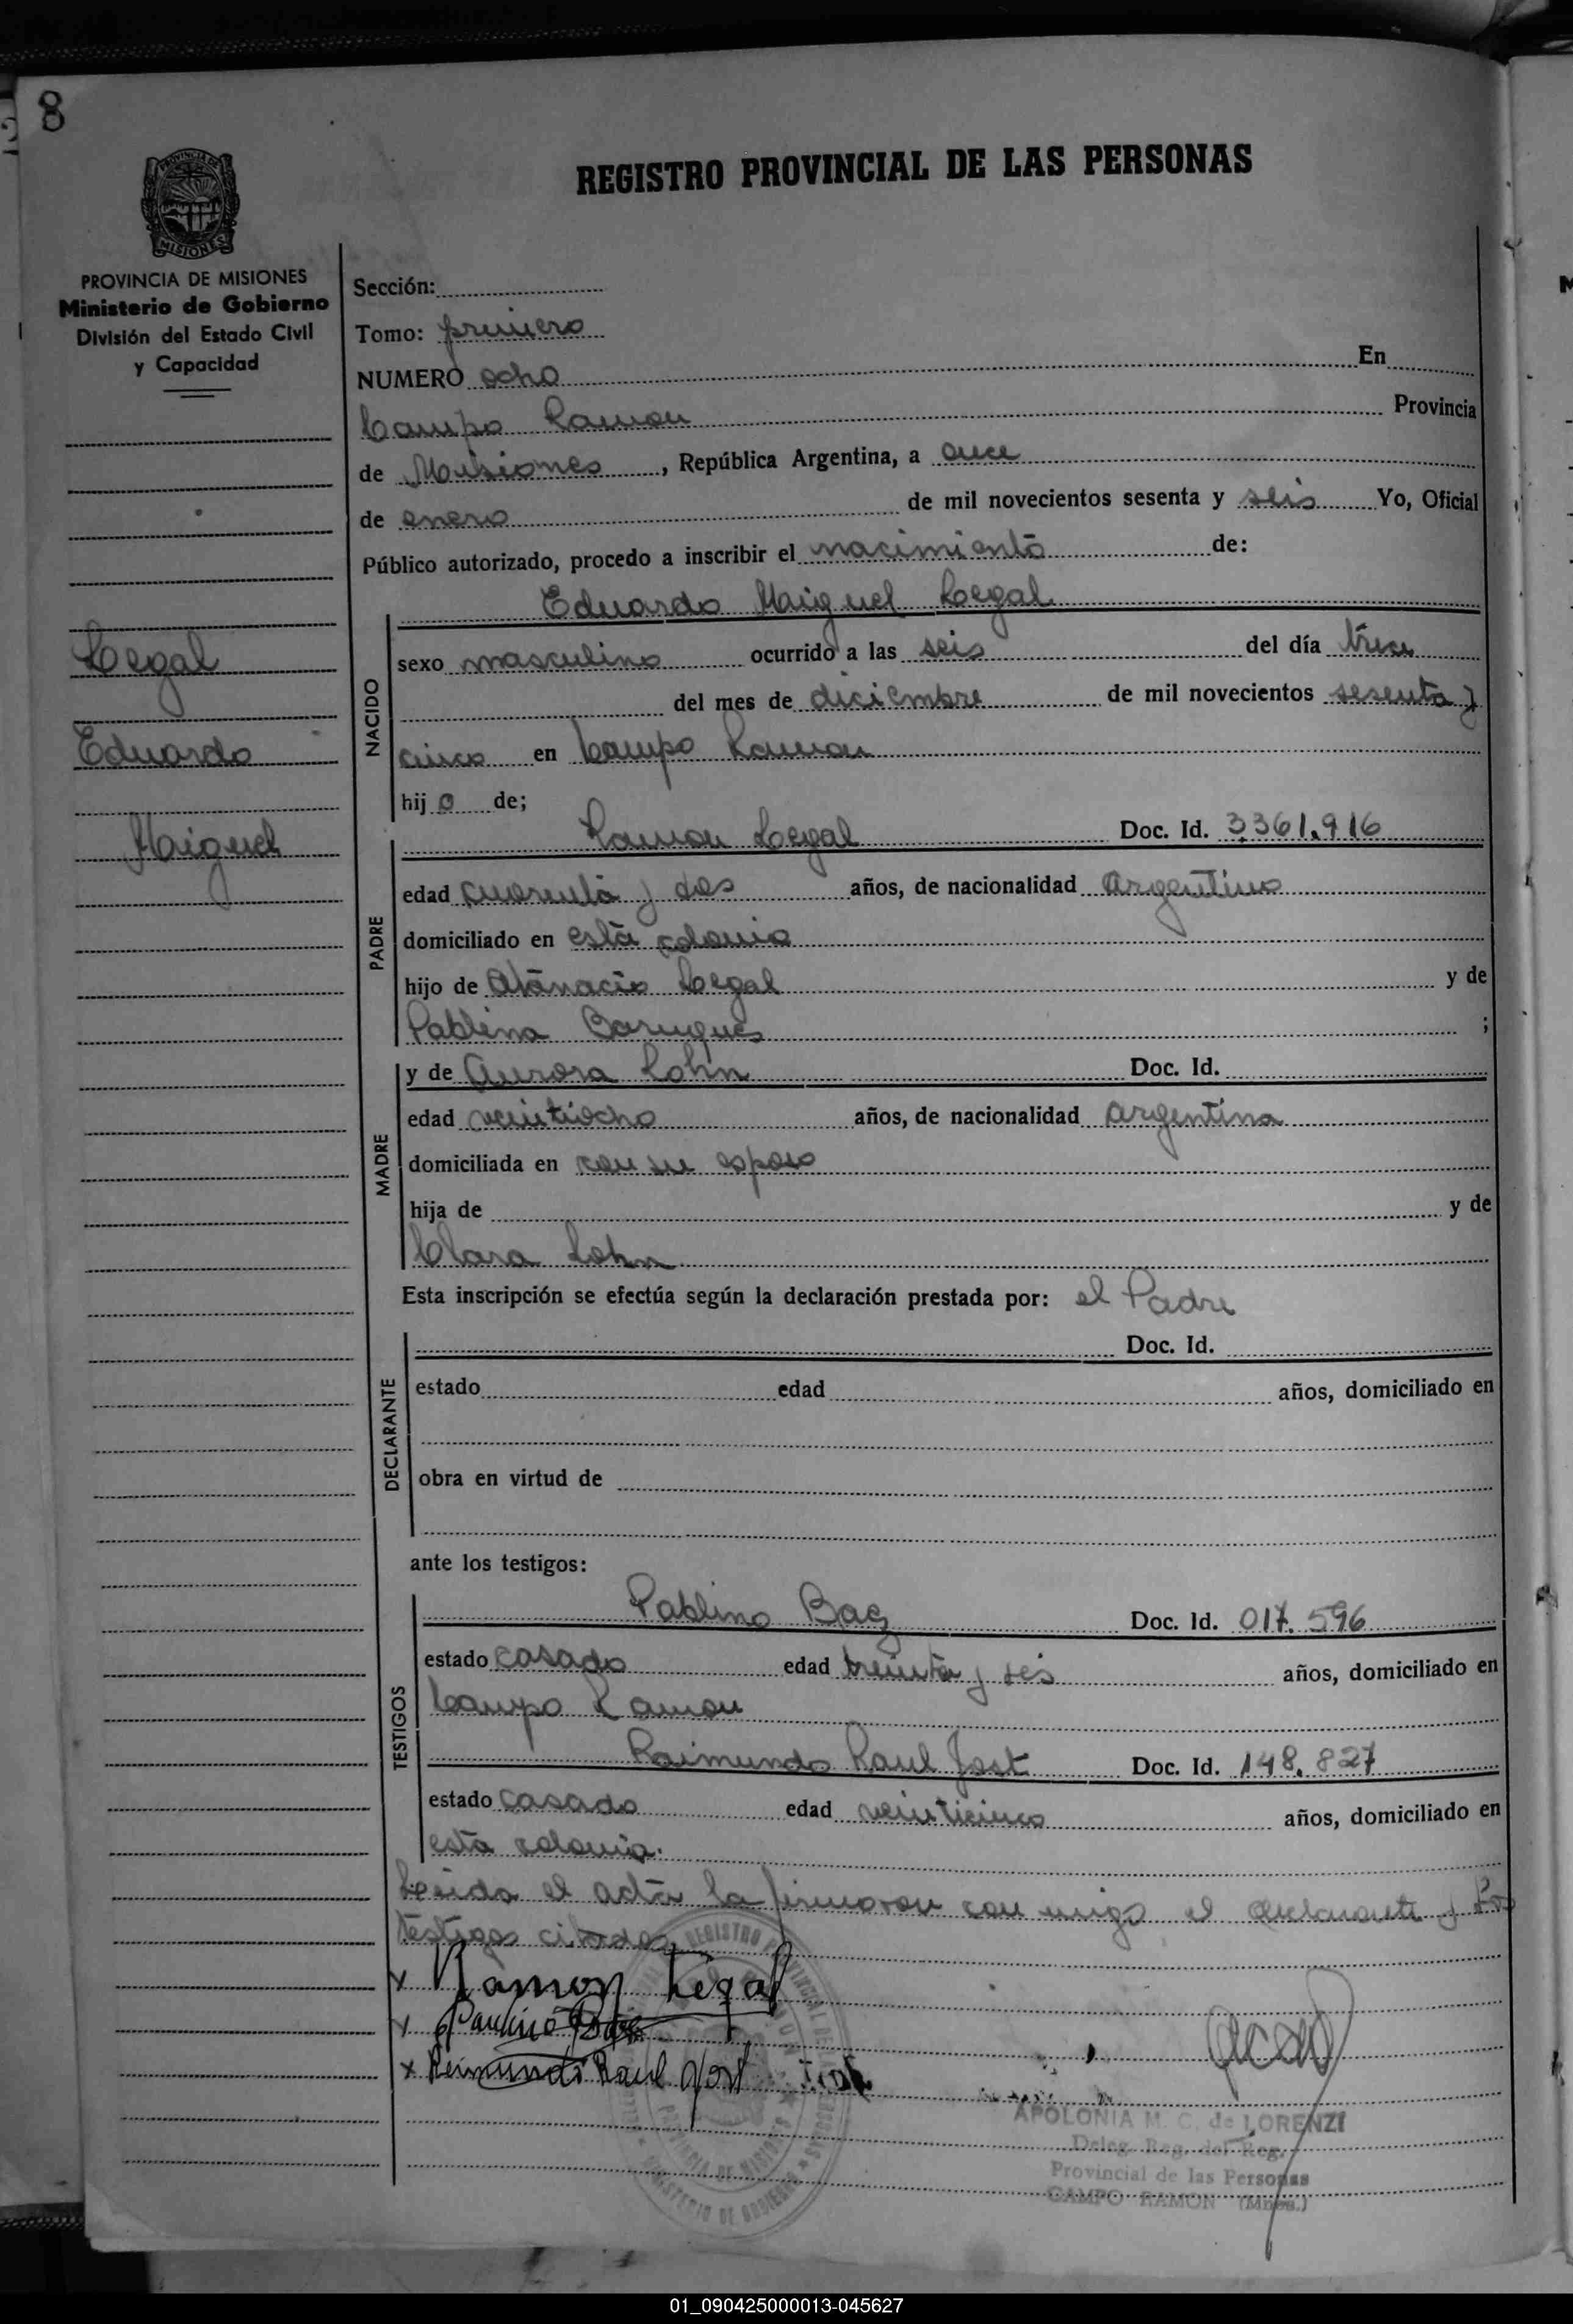 8
PROVINCIA DE MISIONES
Ministerio de Gobierno
División del Estado Civil
y Capacidad
Legal
Eduardo
Maiguel
REGISTRO PROVINCIAL DE LAS PERSONAS
Sección:
Tomo: primero
NUMERO ocho En
Campo Ramon Provincia
de Misiones, República Argentina, a once
de enero de mil novecientos sesenta y seis Yo, Oficial
Público autorizado, procedo a inscribir el nacimiento de:
Eduardo Maiguel Legal
NACIDO
sexo masculino ocurrido a las seis del día trece
del mes de diciembre de mil novecientos sesenta y
cinco en Campo Ramon
hijo de;
Ramon Legal Doc. Id. 3361.916
PADRE
edad cuarenta y dos años, de nacionalidad Argentino
domiciliado en esta colonia
hijo de Atanacio Legal y de
Pablina ;
y de Aurora Lohn Doc. Id.
MADRE
edad veintiocho años, de nacionalidad argentina
domiciliada en con su esposo
hija de y de
Clara Lohn
Esta inscripción se efectúa según la declaración prestada por: el Padre
Doc. Id.
DECLARANTE
estado edad años, domiciliado en
obra en virtud de
ante los testigos:
Pablino Baez Doc. Id. 017.596
TESTIGOS
estado casado edad treinta y seis años, domiciliado en
Campo Ramon
Raimundo Raul Jost Doc. Id. 148.827
estado casado edad veinticinco años, domiciliado en
esta colonia.
Leida el acta la firmaron con migo el declarante y los
testigos citados
x Ramon Legal
x Paulino Baez
x Reimundo Raul Jost
APOLONIA M. C. de LORENZI
Deleg. Reg. del Reg.
Provincial de las Personas
CAMPO RAMON (Mnes.)
01_090425000013-045627